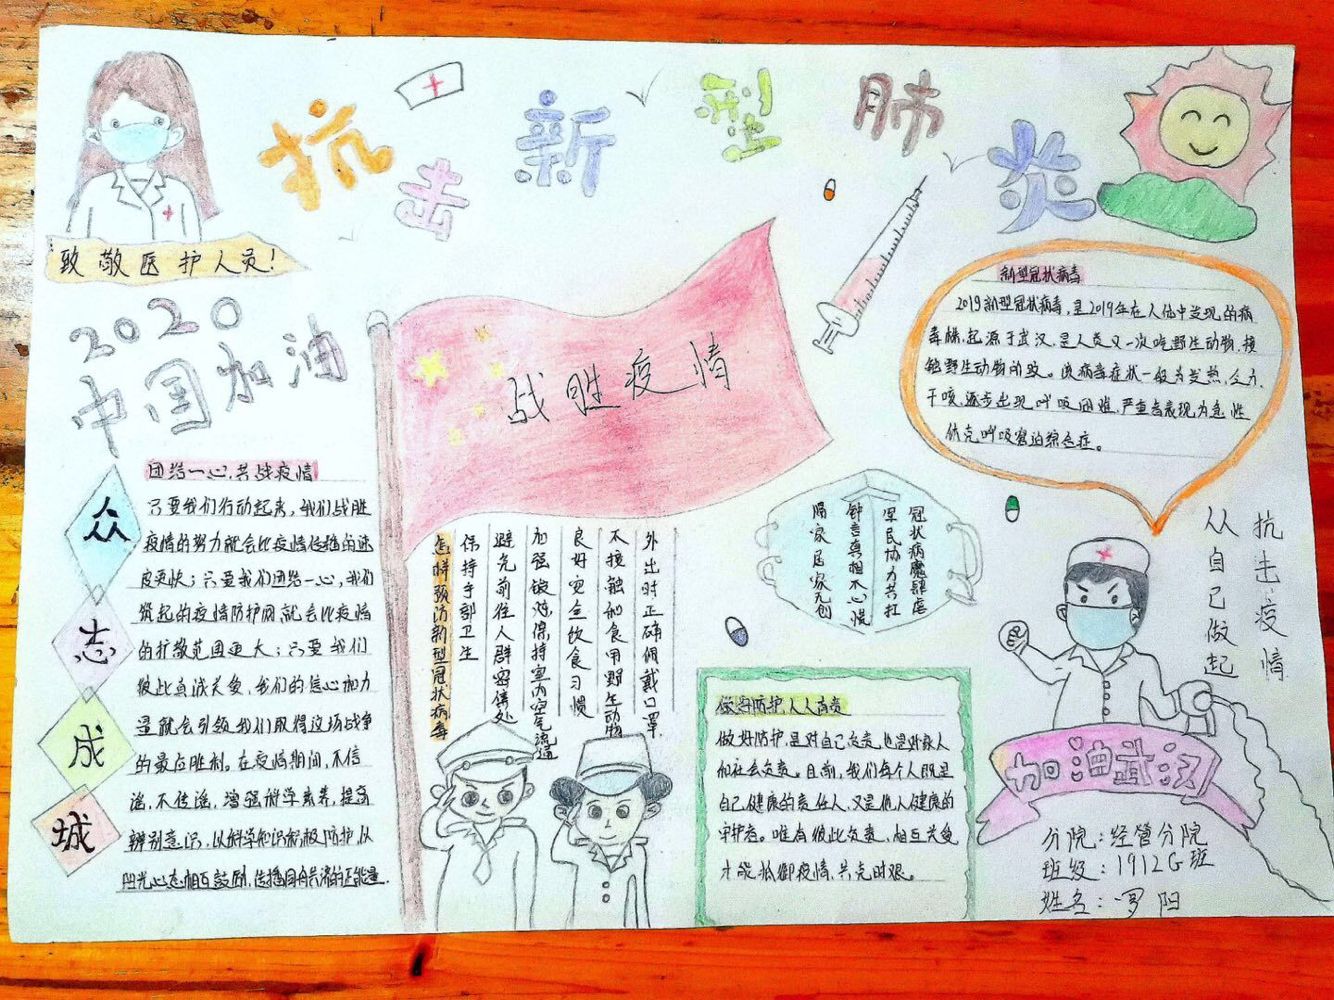 抗击新型肺炎
致敬医护人员!
2020
中国加油
战胜疫情
新型冠状病毒
2019新型冠状病毒,是2019年在人体中发现的病
毒株,起源于武汉,是人类又一次吃野生动物,接
触野生动物所致。该病毒症状一般为发热,乏力,
干咳,逐步出现呼吸困难,严重者表现为急性
呼吸窘迫综合症。
团结一心,共战疫情
众志成城
只要我们行动起来,我们战胜
疫情的努力就会比疫情传播的速
度更快;只要我们团结一心,我们
筑起的疫情防护网,就会比疫情
的扩散范围更大;只要我们
彼此真诚关爱,我们的信心和力
量就会引领我们取得这场战争
的最后胜利。在疫情期间,不信
谣,不传谣,增强科学素养,提高
辨别意识,以科学知识积极防护,以
阳光心态相互鼓励,传播同舟共济的正能量.
怎样预防新型冠状病毒
保持手部卫生
避免前往人群密集处
加强锻炼保持室内空气流通
良好安全饮食习惯
不接触和食用野生动物
外出时正确佩戴口罩,
冠状病魔肆虐
军民协力共扛
钟言真相不心慌
隔家居家无创
抗击疫情
从自己做起
做好防护,人人有责
做好防护,是对自己负责,也是对家人
和社会负责。目前,我们每个人既是
自己健康的责任人,又是他人健康的
守护者。唯有彼此负责,相互关爱
才能抵御疫情,共克时艰。
加油武汉
分院:经管分院
班级:1912G班
姓名:罗阳